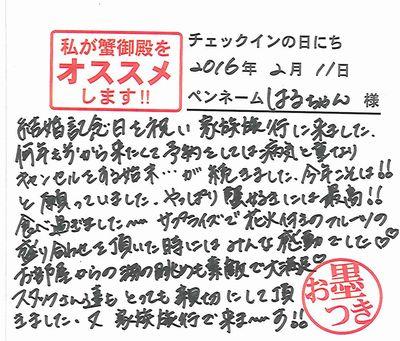 私が蟹御殿を
オススメ
します!!
チェックインの日にち
2016年 2月 11日
ペンネーム はるちゃん 様
結婚記念日を祝い 家族旅行に来ました.
何年も前から来たくて予約をしては病気と重なり
キャンセルをする始末…が続きました.今年こそは!!
と願っていました.やっぱり蟹好きには最高!!
食べ過ぎました〜〜 サプライズで花火付きのフルーツの
盛り合わせを頂いた時にはみんな感動でした♡
お部屋からの海の眺めも素敵で大満足♡
スタッフさん達も とっても親切にして頂
きました.又 家族旅行で来ま〜〜す!!
お墨
つき